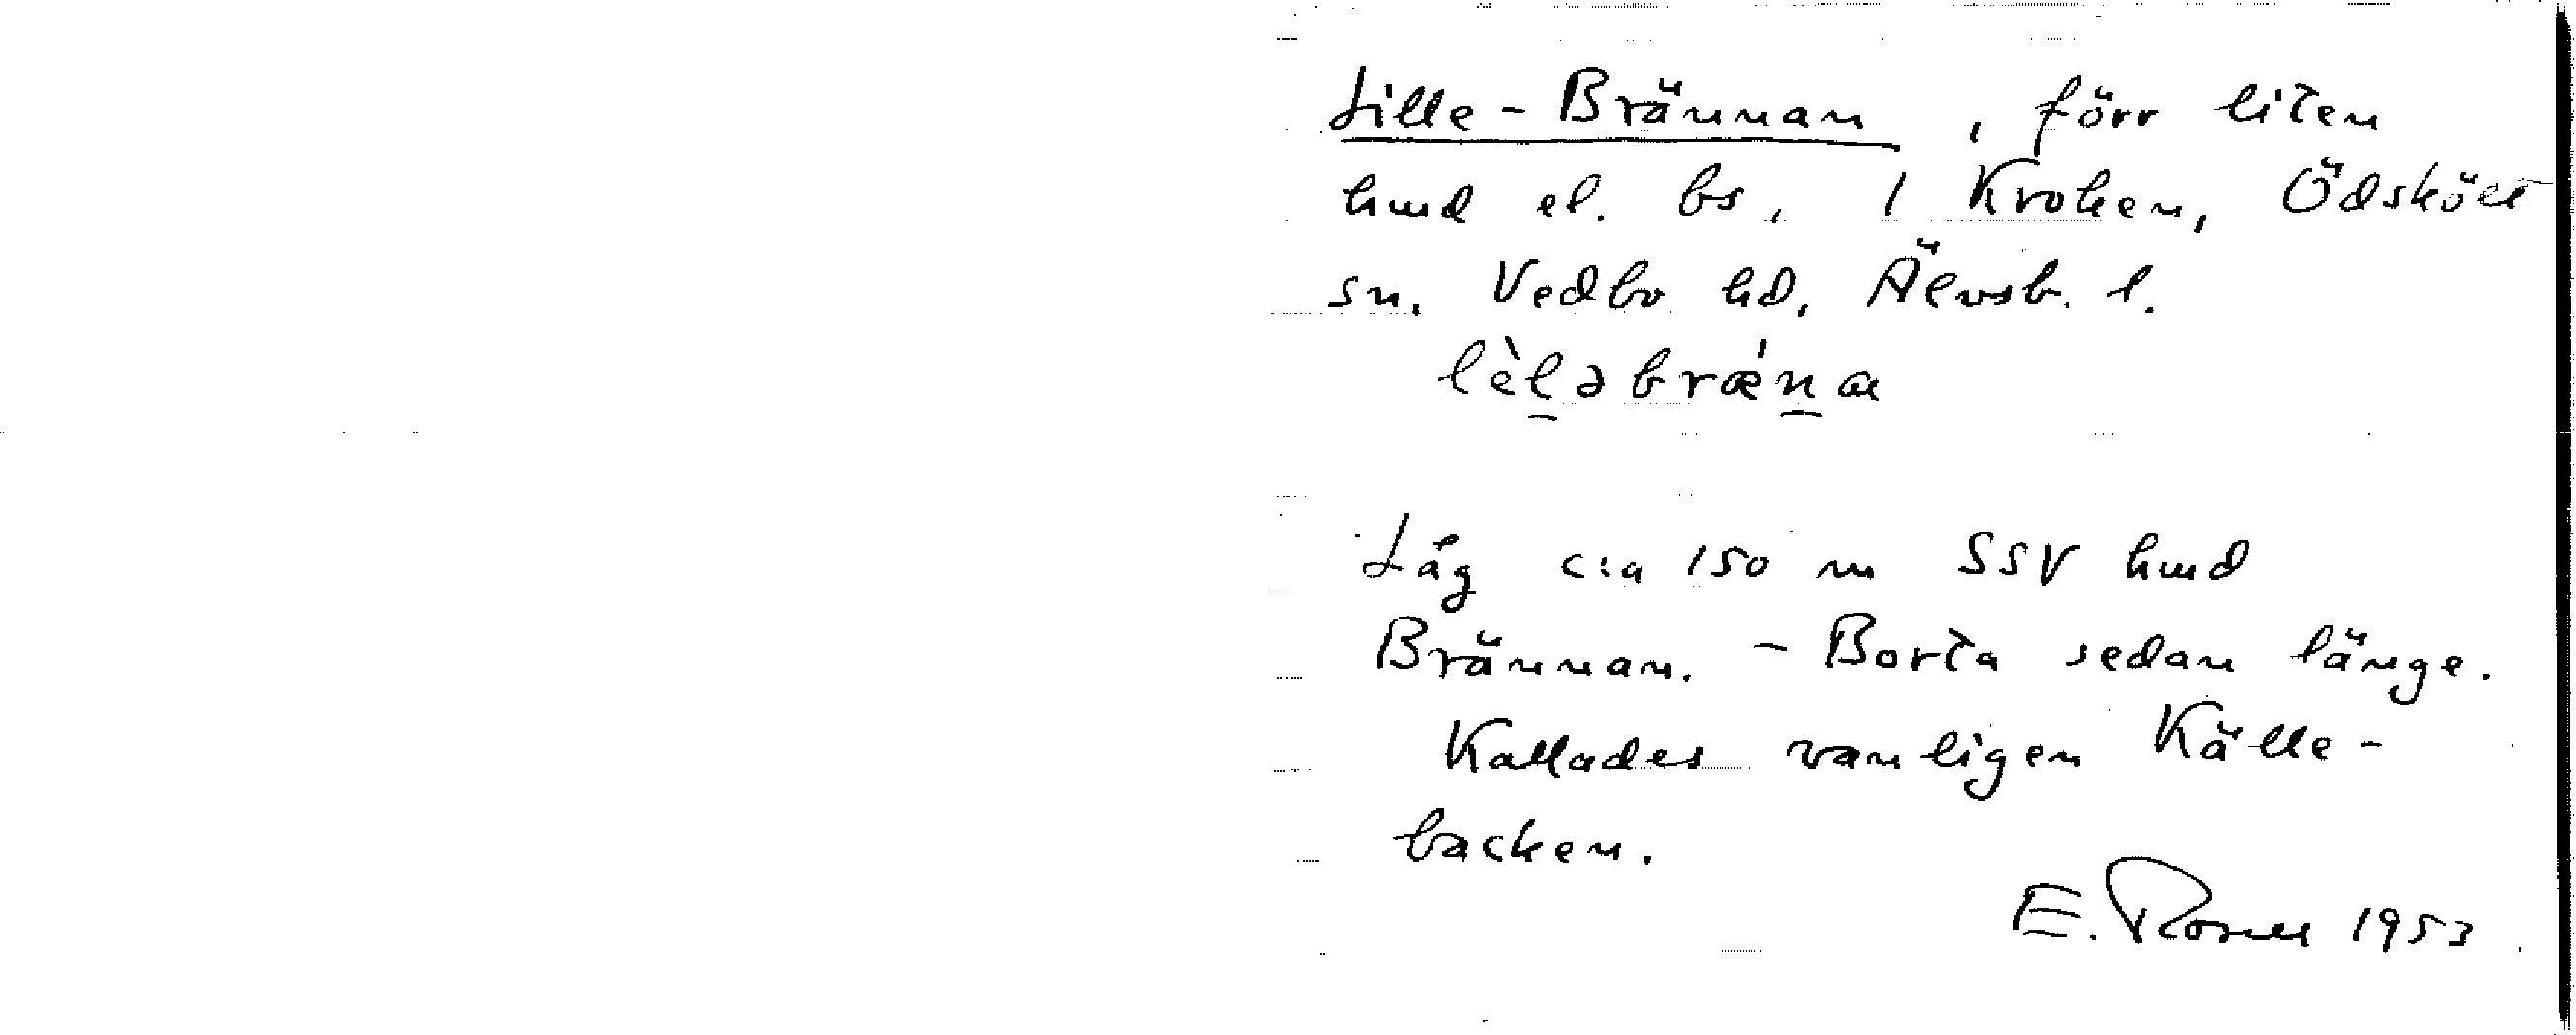 Lille-Brännan, förr liten
hmd el. bs, i Kroken, Ödsköls
sn. Vedbo hd, Älvsb. l.
lèḻəbrǽṉa
Låg c:a 150 m SSV hmd
Brännan. - Borta sedan länge.
Kallades vanligen Källe-
backen.
E. Rosell 1953